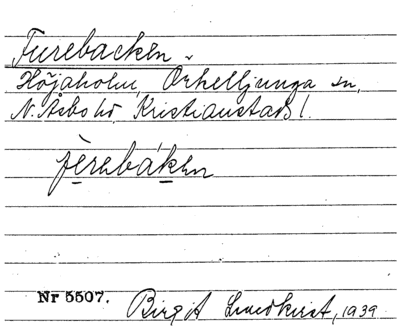 Furebacken.
Höjaholm, Örkelljunga sn,
N. Åsbo hd, Kristianstads l.
fèrebáken
Nr 5507. Birgit Lundkvist, 1939